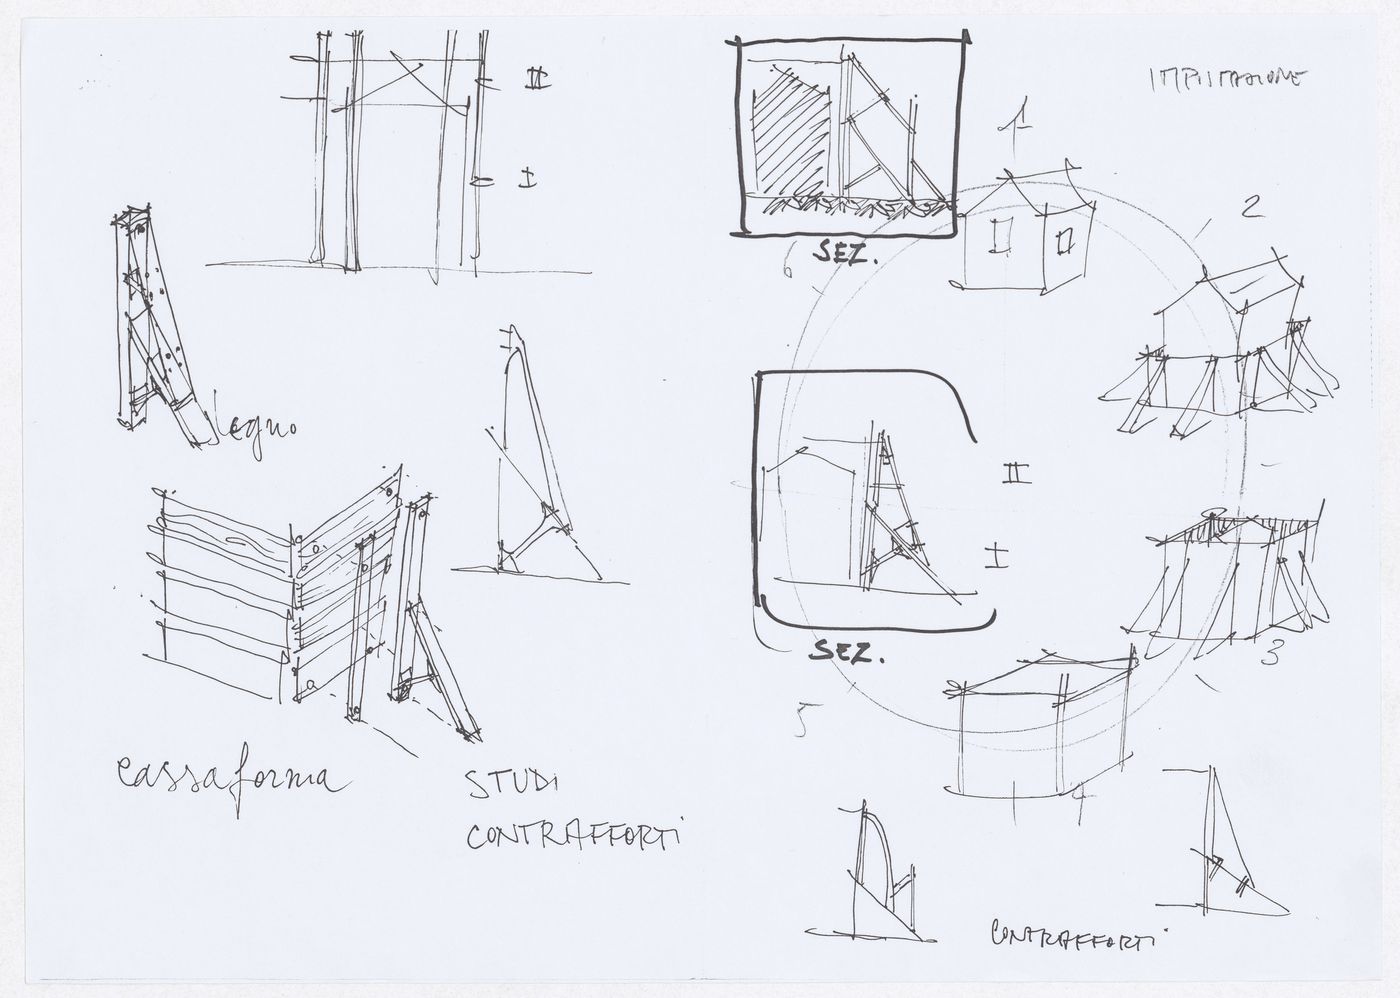 II
I
legno
cassaforma
STUDI
CONTRAFFORTI
SEZ.
1
2
6
II
I
SEZ.
3
5
4
CONTRAFFORTI